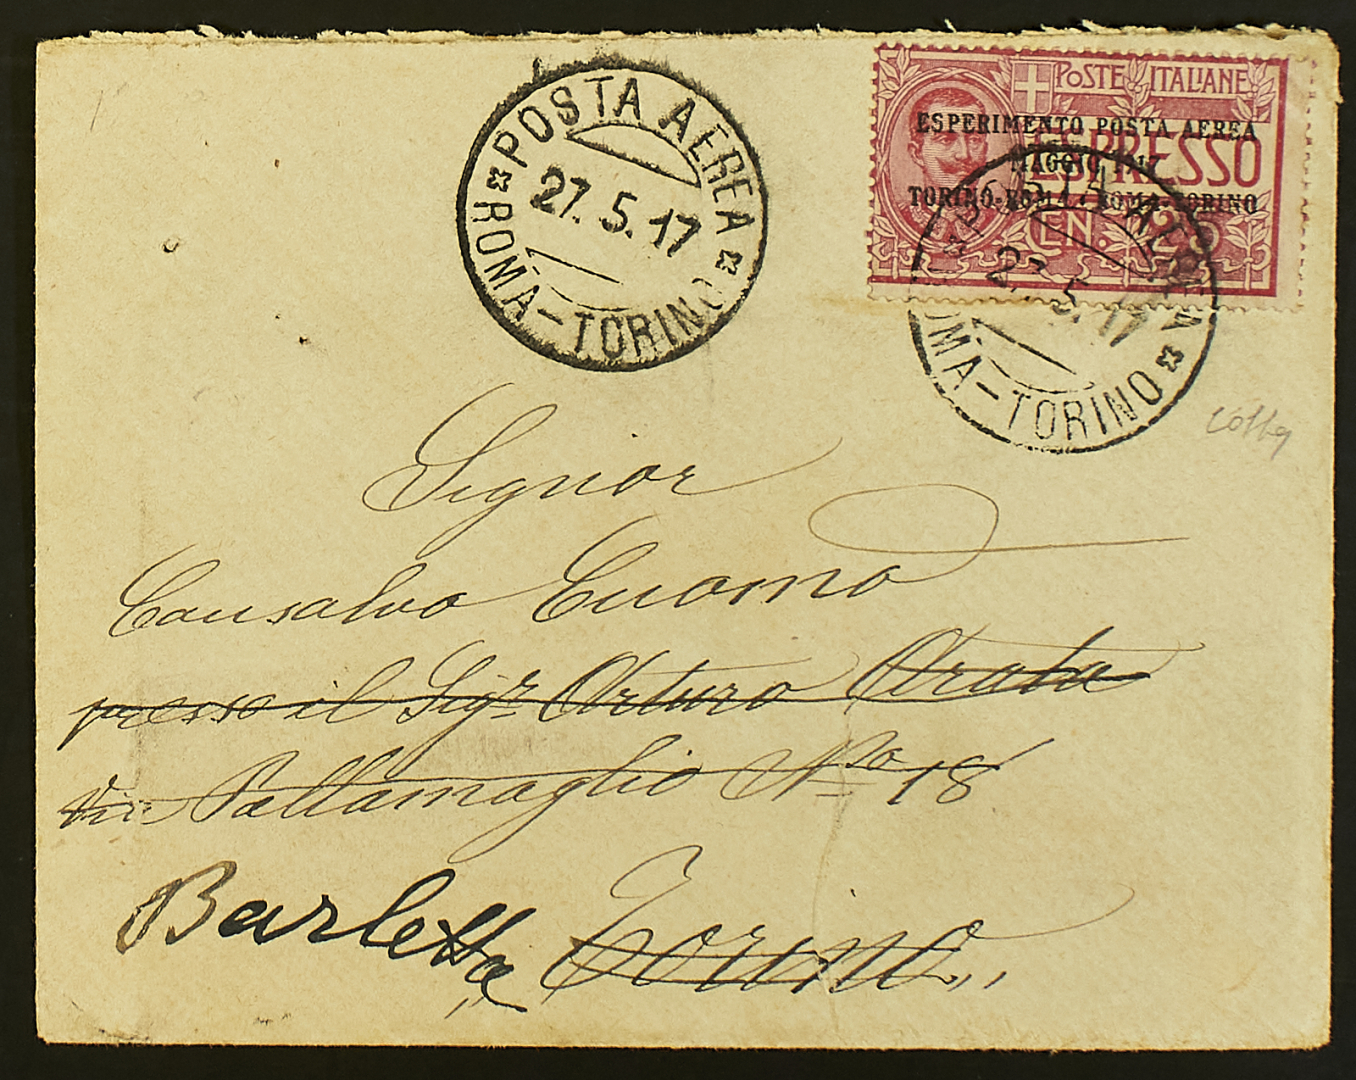 POSTA AEREA
27.5.17
ROMA-TORINO
POSTE ITALIANE
ESPRESSO
CEN. 25
ESPERIMENTO POSTA AEREA
MAGGIO 1917
TORINO-ROMA · ROMA-TORINO
POSTA AEREA
27.5.17
ROMA-TORINO
Signor
Consalvo Cuomo
presso il Sigr. Arturo Orata
via Pallamaglio No 18
Barletta Torino